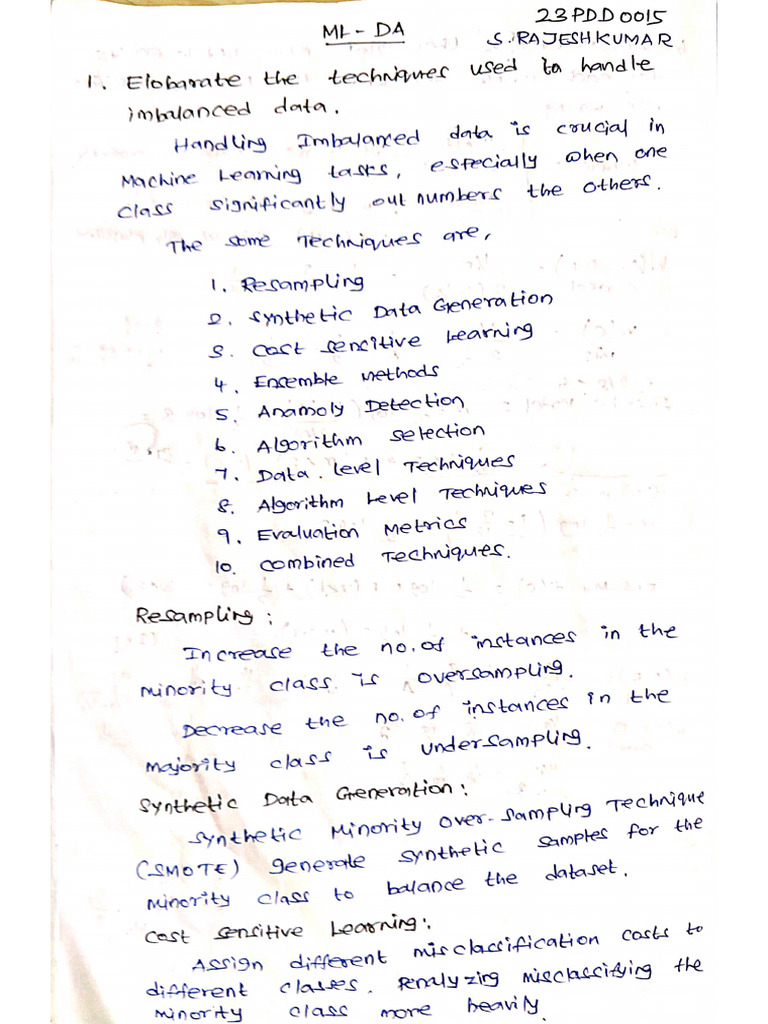 23PDD0015
ML - DA
S. RAJESHKUMAR
1. Elobarate the techniques used to handle
imbalanced data.
Handling Imbalanced data is crucial in
Machine Learning tasks, especially when one
class significantly out numbers the others.
The some Techniques are,
1. Resampling
2. Synthetic Data Generation
3. Cost Sensitive Learning
4. Ensemble Methods
5. Anamoly Detection
6. Algorithm Selection
7. Data level Techniques
8. Algorithm Level Techniques
9. Evaluation Metrics
10. Combined Techniques.
Resampling:
Increase the no. of instances in the
minority class is oversampling.
Decrease the no. of instances in the
majority class is undersampling.
Synthetic Data Generation:
Synthetic Minority Over-Sampling Technique
(SMOTE) generate synthetic samples for the
minority class to balance the dataset.
Cost Sensitive Learning:
Assign different misclassification costs to
different classes. Penalyzing misclassifying the
minority class more heavily